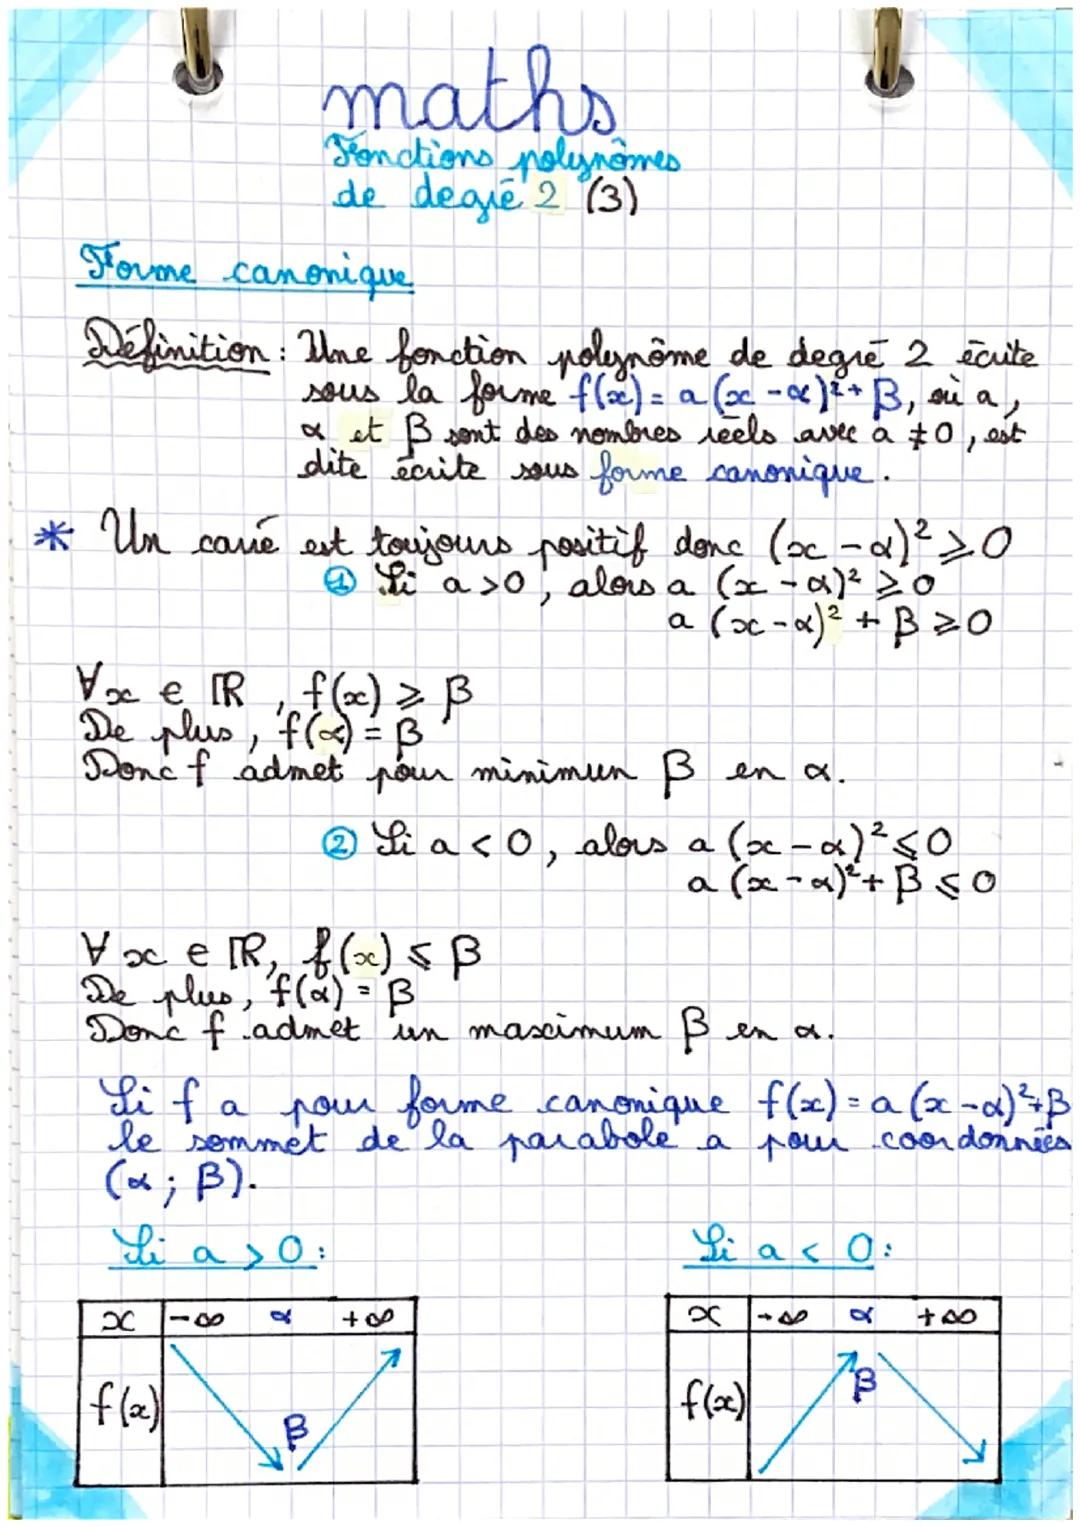 maths
Fonctions polynômes
de degré 2 (3)
Forme canonique
Définition : Une fonction polynôme de degré 2 écrite
sous la forme f(x) = a (x - α)² + β, où a,
α et β sont des nombres réels avec a ≠ 0, est
dite écrite sous forme canonique.
* Un carré est toujours positif donc (x - α)² ⩾ 0
① Si a > 0, alors a (x - α)² ⩾ 0
a (x - α)² + β ⩾ 0
∀x ∈ ℝ, f(x) ⩾ β
De plus, f(α) = β
Donc f admet pour minimun β en α.
② Si a < 0, alors a (x - α)² ⩽ 0
a (x - α)² + β ⩽ 0
∀x ∈ ℝ, f(x) ⩽ β
De plus, f(α) = β
Donc f admet un maximum β en α.
Si f a pour forme canonique f(x) = a (x - α)² + β
le sommet de la parabole a pour coordonnées
(α ; β).
Si a > 0 : Si a < 0 :
x -∞ α +∞ x -∞ α +∞
f(x) β f(x) β